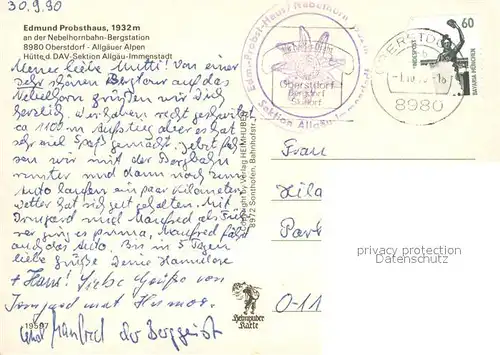 30.9.90
Edmund Probsthaus, 1932 m
an der Nebelhornbahn-Bergstation
8980 Oberstdorf - Allgäuer Alpen
Hütte d. DAV-Sektion Allgäu-Immenstadt
Meine liebe Mutti! Von einer
sehr schönen Bergtour auf das
Nebelhorn grüßen wir Dich
herzlich. Wir haben recht geschwitzt
ca 1100 m Aufstieg aber es hat
sehr viel Spaß gemacht. Jetzt fah-
ren wir mit der Bergbahn
runter und dann noch zum
Auto laufen ein paar Kilometer.
Wetter hat sich gut gehalten. Mit
Irmgard und Manfred als
war ging es prima, Manfred fährt
auch das Auto. Bis in 5 Tagen
liebe Grüße Deine Hannelore
+ Hans! Liebe Grüße von
Irmgard und
und Manfred der Berggeist
19587
Copyright by Verlag HEIMHUBER
8972 Sonthofen, Bahnhofstr.
Edm.-Probst-Haus / Nebelhorn
Sektion Allgäu-Immenstadt
Oberstdorf
OBERSTDORF
8980
60
DEUTSCHE BUNDESPOST
BAVARIA MÜNCHEN
Frau
Hila
Park
0-11
Heimhuber
Karte
PRIVATE COLLECTION
WWW.DELCAMPE.NET